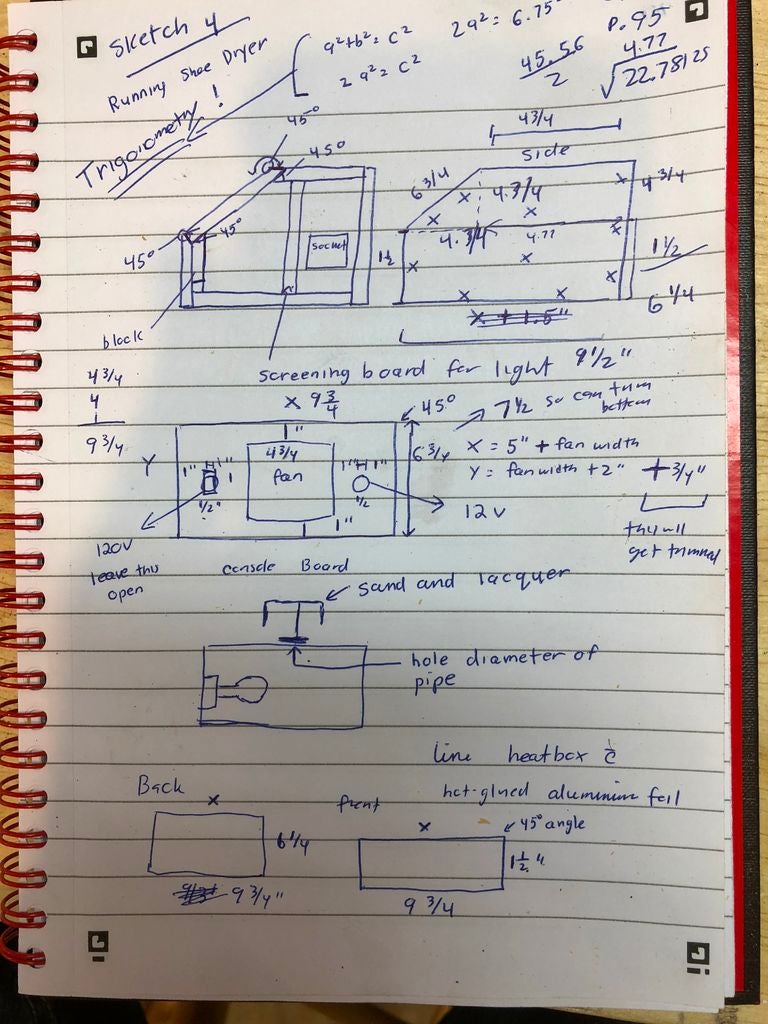 Sketch 4
Running Shoe Dryer
Trigonometry!
a²+b²=c²
2a²=c²
2a²=6.75²
p.95
45.56
2
4.77
√22.78125
45°
45°
45°
45°
socket
block
screening board for light
4 3/4
side
6 3/4
4.3/4
4 3/4
4.3/4
4.77
1½
1½
6 1/4
9 1/2"
4 3/4
4
1
9 3/4
X 9 3/4
45°
7½ so can trim bottom
1"
4 3/4
fan
6 3/4
X = 5" + fan width
Y = fan width + 2" + 3/4"
this will
get trimmed
Y
1"
1"
1
1/2"
1"
1"
1/2
1"
12V
120V
leave this
open
console Board
sand and lacquer
hole diameter of
pipe
Line heatbox c̄
hot-glued aluminium foil
Back
X
6 1/4
9 3/4"
front
X
45° angle
1 1/2"
9 3/4